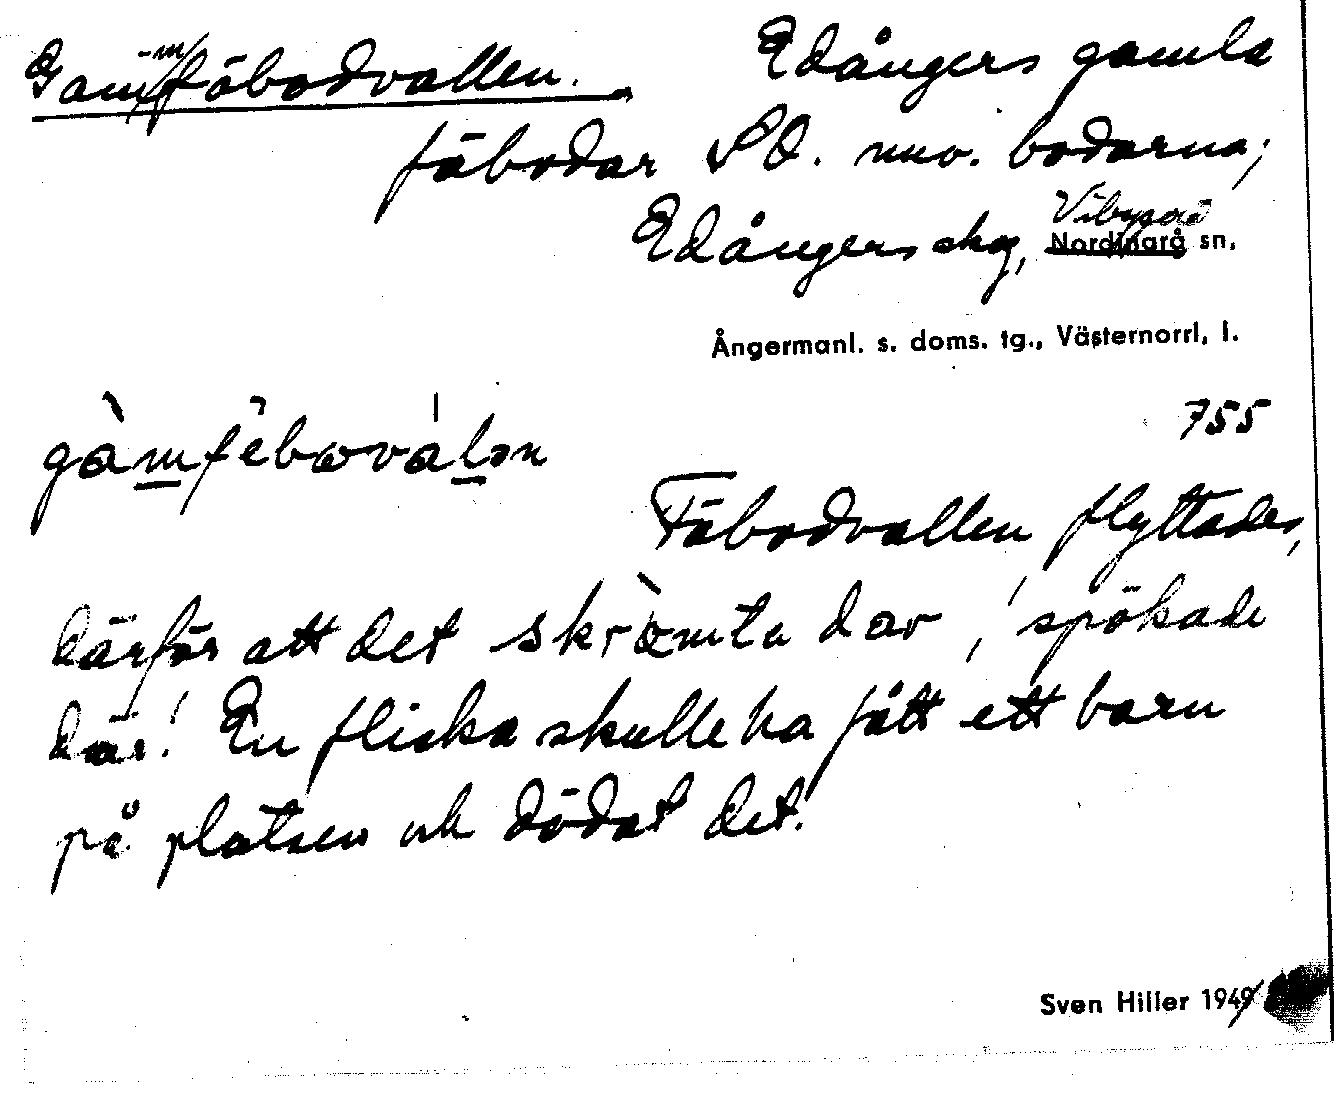 Gammfäbodvallen. Edångers gamla
fäbodar SO. nuv. bodarna;
Edångers skog, Vibyggerå
Nordingrå sn,
Ångermanl. s. doms. tg., Västernorrl, l.
755
gàmfèbωválən
Fäbodvallen flyttades,
därför att det skrämta där, 'spökade
där.' En flicka skulle ha fått ett barn
på platsen och dödat det.
Sven Hiller 1949